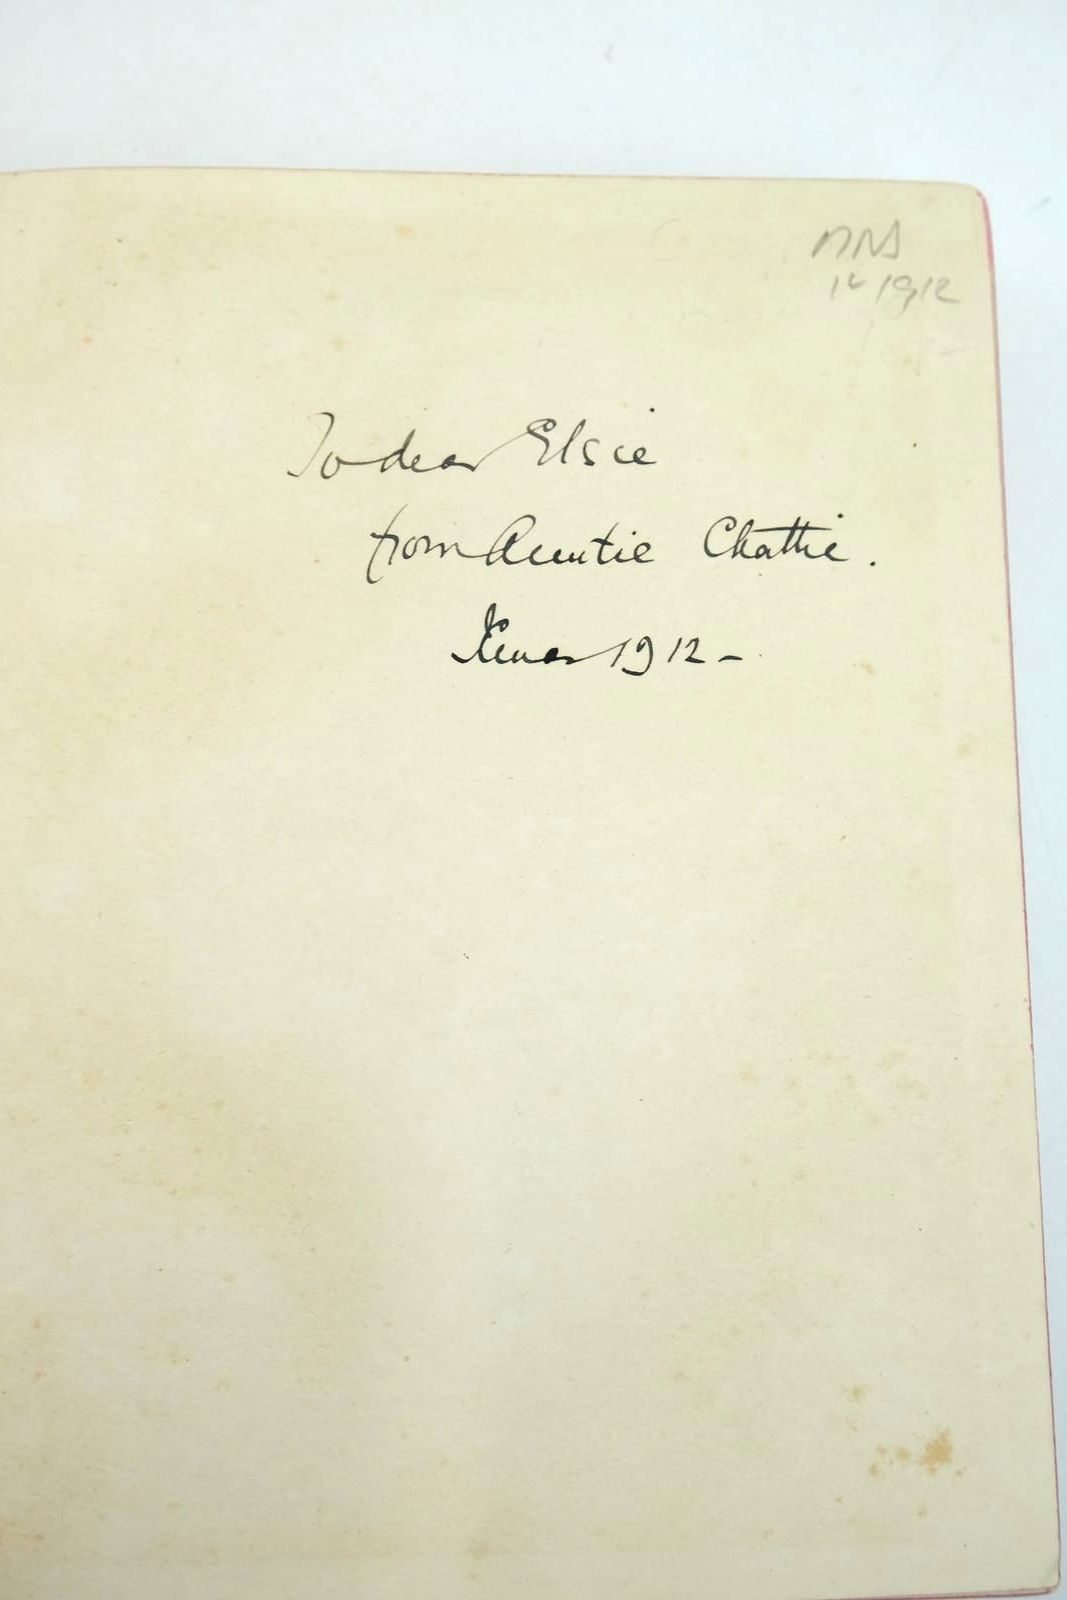 1912
To dear Elsie
from Auntie Chattie.
Xmas 1912 –